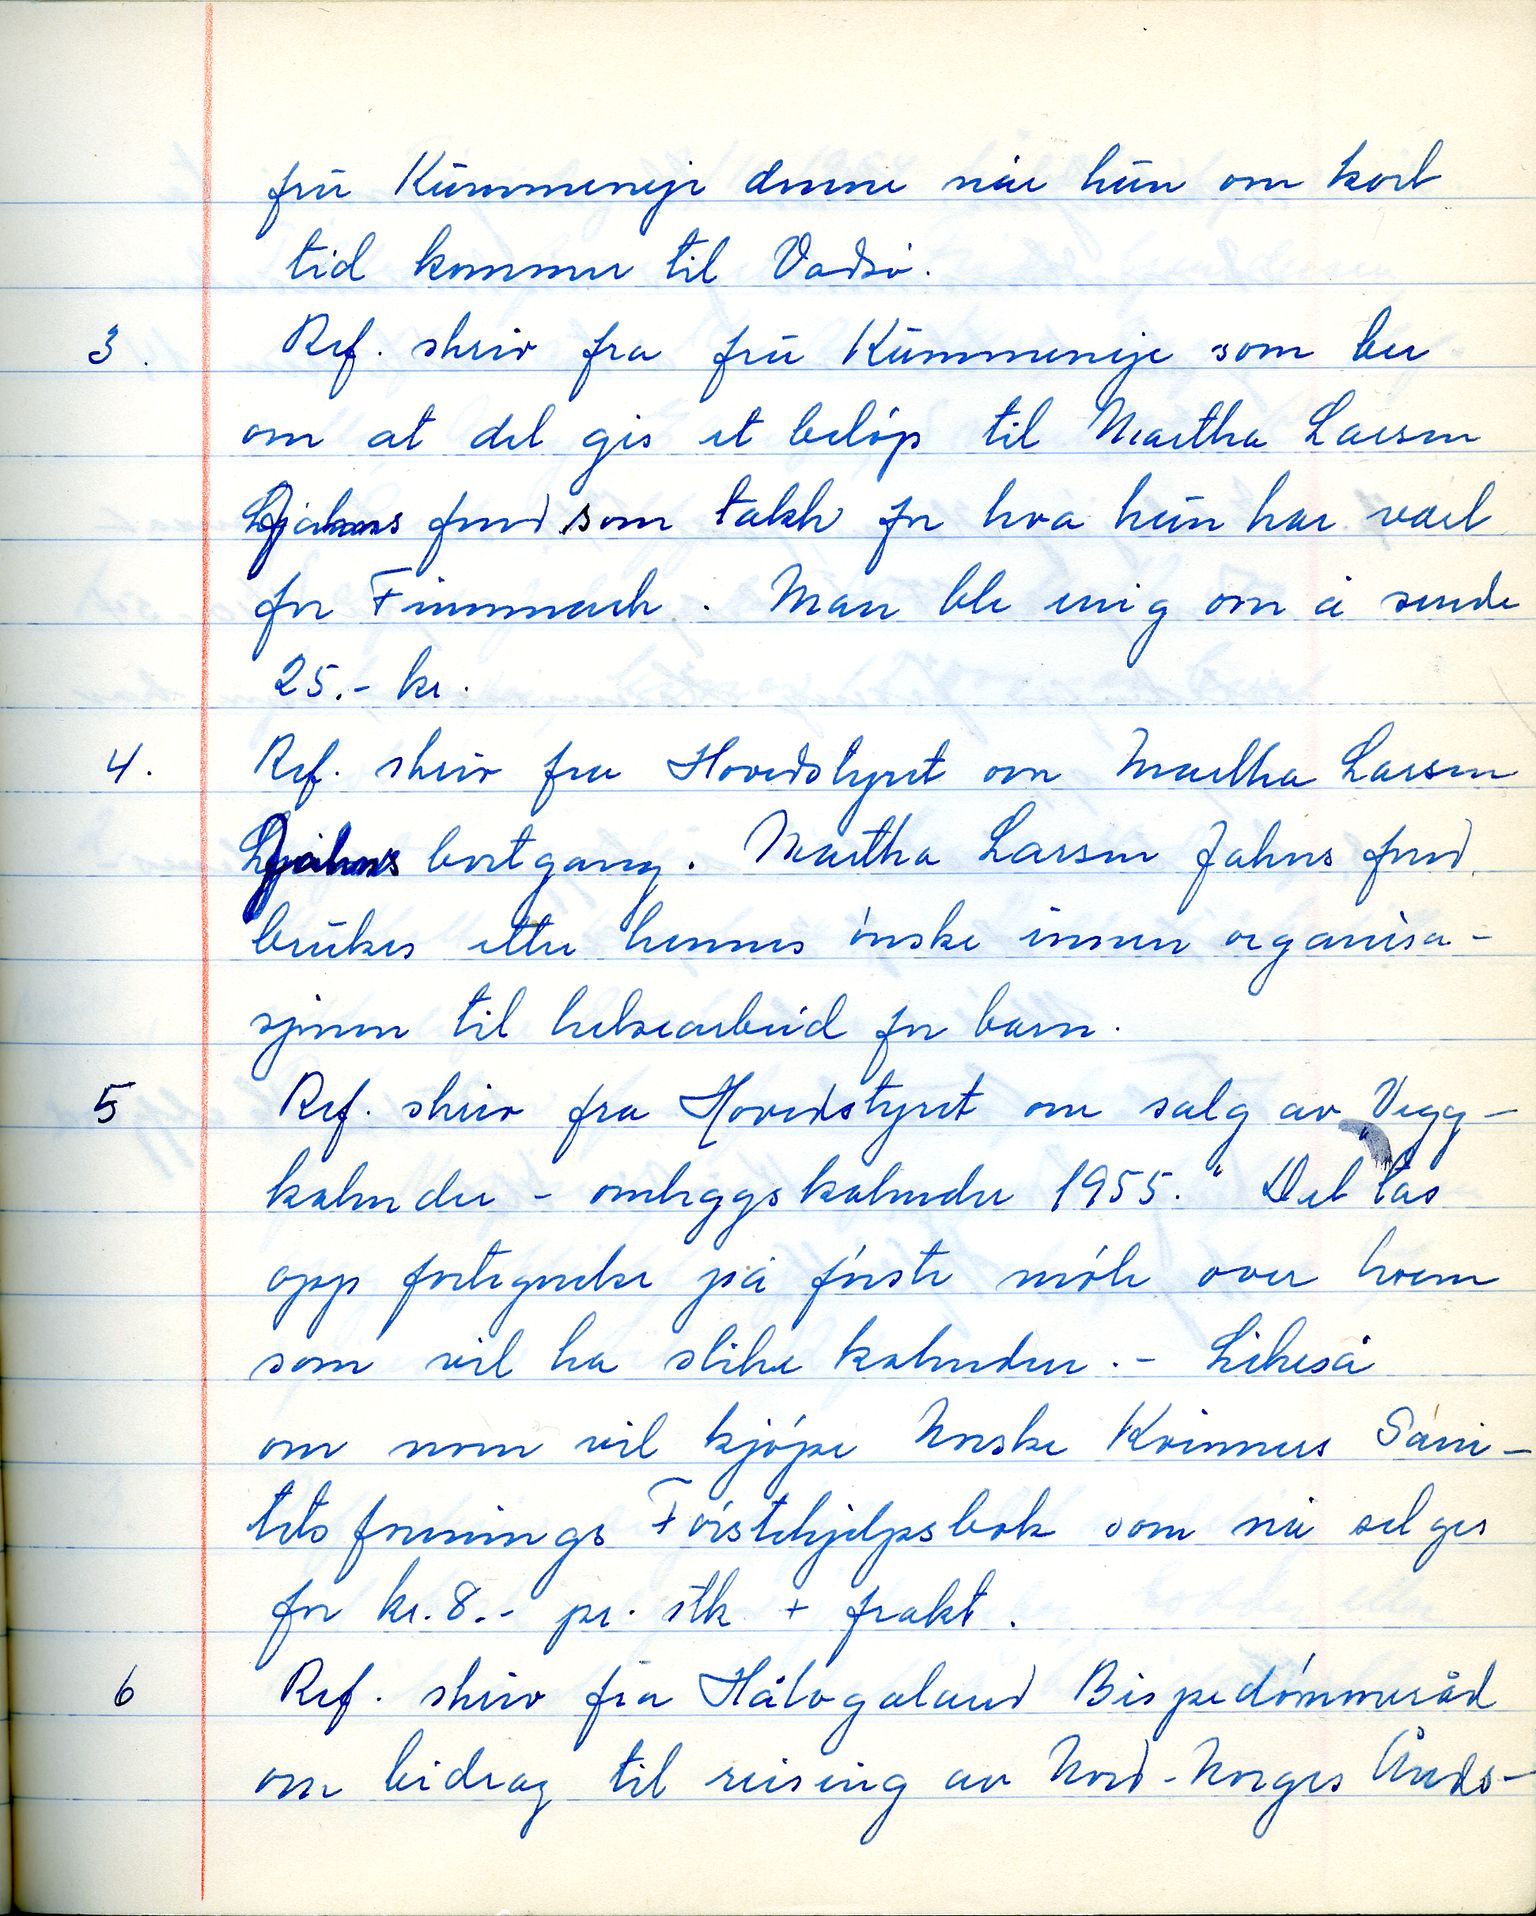 fru Kummeneje denne når hun om kort
tid kommer til Vadsø.
3. Ref. skriv fra fru Kummeneje som ber
om at det gis et beløp til Martha Larsen
Jahns fond som takk for hva hun har vært
for Finnmark. Man ble enig om å sende
25.- kr.
4. Ref. skriv fra Hovedstyret om Martha Larsen
Jahns bortgang. Martha Larsen Jahns fond
brukes etter hennes ønske innen organisa-
sjonen til helsearbeid for barn.
5 Ref. skriv fra Hovedstyret om salg av „Vegg-
kalender - omleggskalender 1955." Det tas
opp fortegnelse på første møte over hvem
som vil ha slike kalendere. - Likeså
om noen vil kjøpe Norske Kvinners Sani-
tetsforenings Førstehjelpsbok som nå selges
for kr. 8.- pr. stk + frakt.
6 Ref. skriv fra Hålogaland Bispedømmeråd
om bidrag til reising av Nord-Norges Ånds-